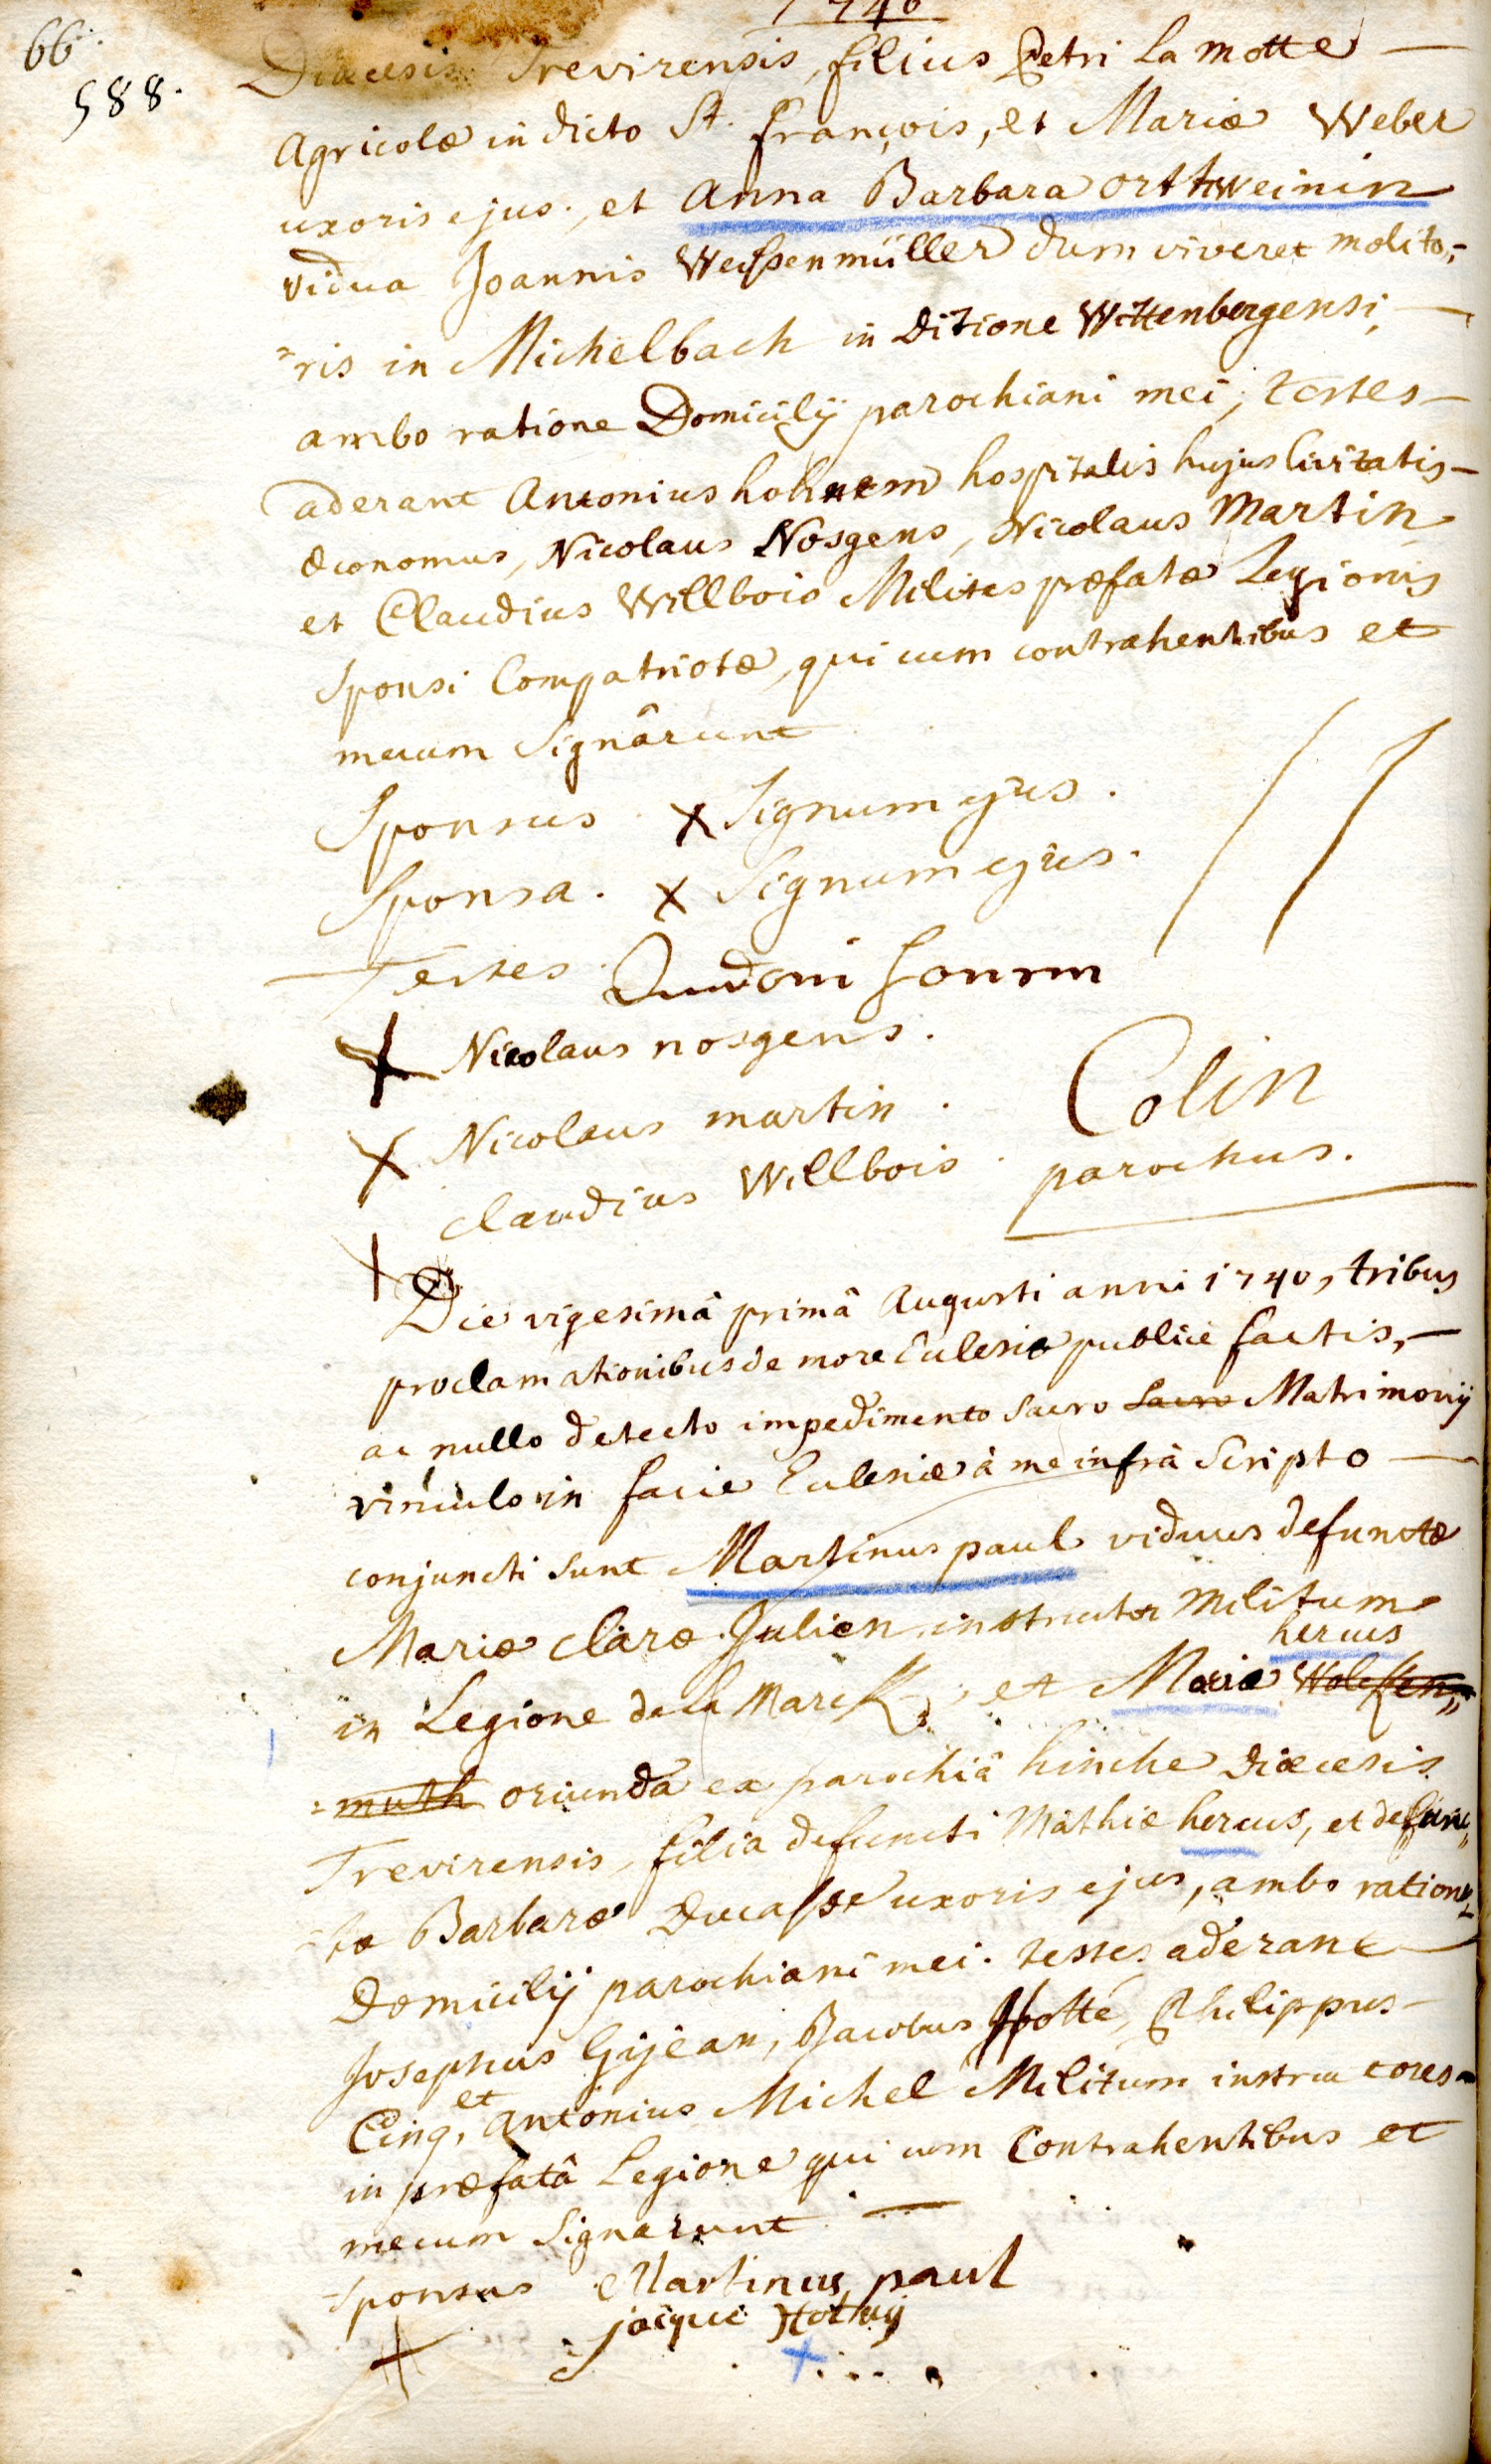 1740
66.
588.
Diœcesis Trevirensis, filius Petri La motte
Agricolæ in dicto St. François, et Mariæ Weber
uxoris ejus., et Anna Barbara orttweinin
vidua Joannis Weissenmüller dum viveret molito,-
=ris in Michelbach in Ditione Wittenbergensi,
ambo ratione Domicilÿ parochiani mei, testes
aderant Antonius hohnem hospitalis hujus Civitatis
œconomus, Nicolaus Nosgens, Nicolaus Martin
et Claudius Willbois Milites præfatæ Legionis
Sponsi Compatriotæ, qui cum contrahentibus et
mecum Signârunt
Sponsus x Signum ejus.
Sponsa. x Signum ejus.
Testes.
X Nicolaus nosgens.
X Nicolaus martin.
Claudius Willbois.
Colin
parochus.
Die vigesimâ primâ Augusti anni 1740, tribus
proclamationibus de more Eclesiæ publicè factis,
ac nullo detecto impedimento Sacro Sacro Matrimonij
vinculo in facie Eclesiæ à me infrà Scripto
conjuncti Sunt Martinus paul viduus defunctæ
Mariæ Claræ Julien, instructor Militum
hercus
in Legione de la Marck, et Maria Wolessen,,
=muth oriunda ex parochiâ hinche Diœcesis
Trevirensis, filia defuncti Mathiæ hercus, et defunc,,
-tæ Barbaræ Ducasse uxoris ejus, ambo ratione
Domicilij parochiani mei. testes aderant
Josephus Gijean, Jacobus Hotté, Philippus
et
Cinq, Antonius Michel Militum instructores
in præfatâ Legione qui cum Contrahentibus et
mecum Signarunt
Sponsus Martinus paul
jacque